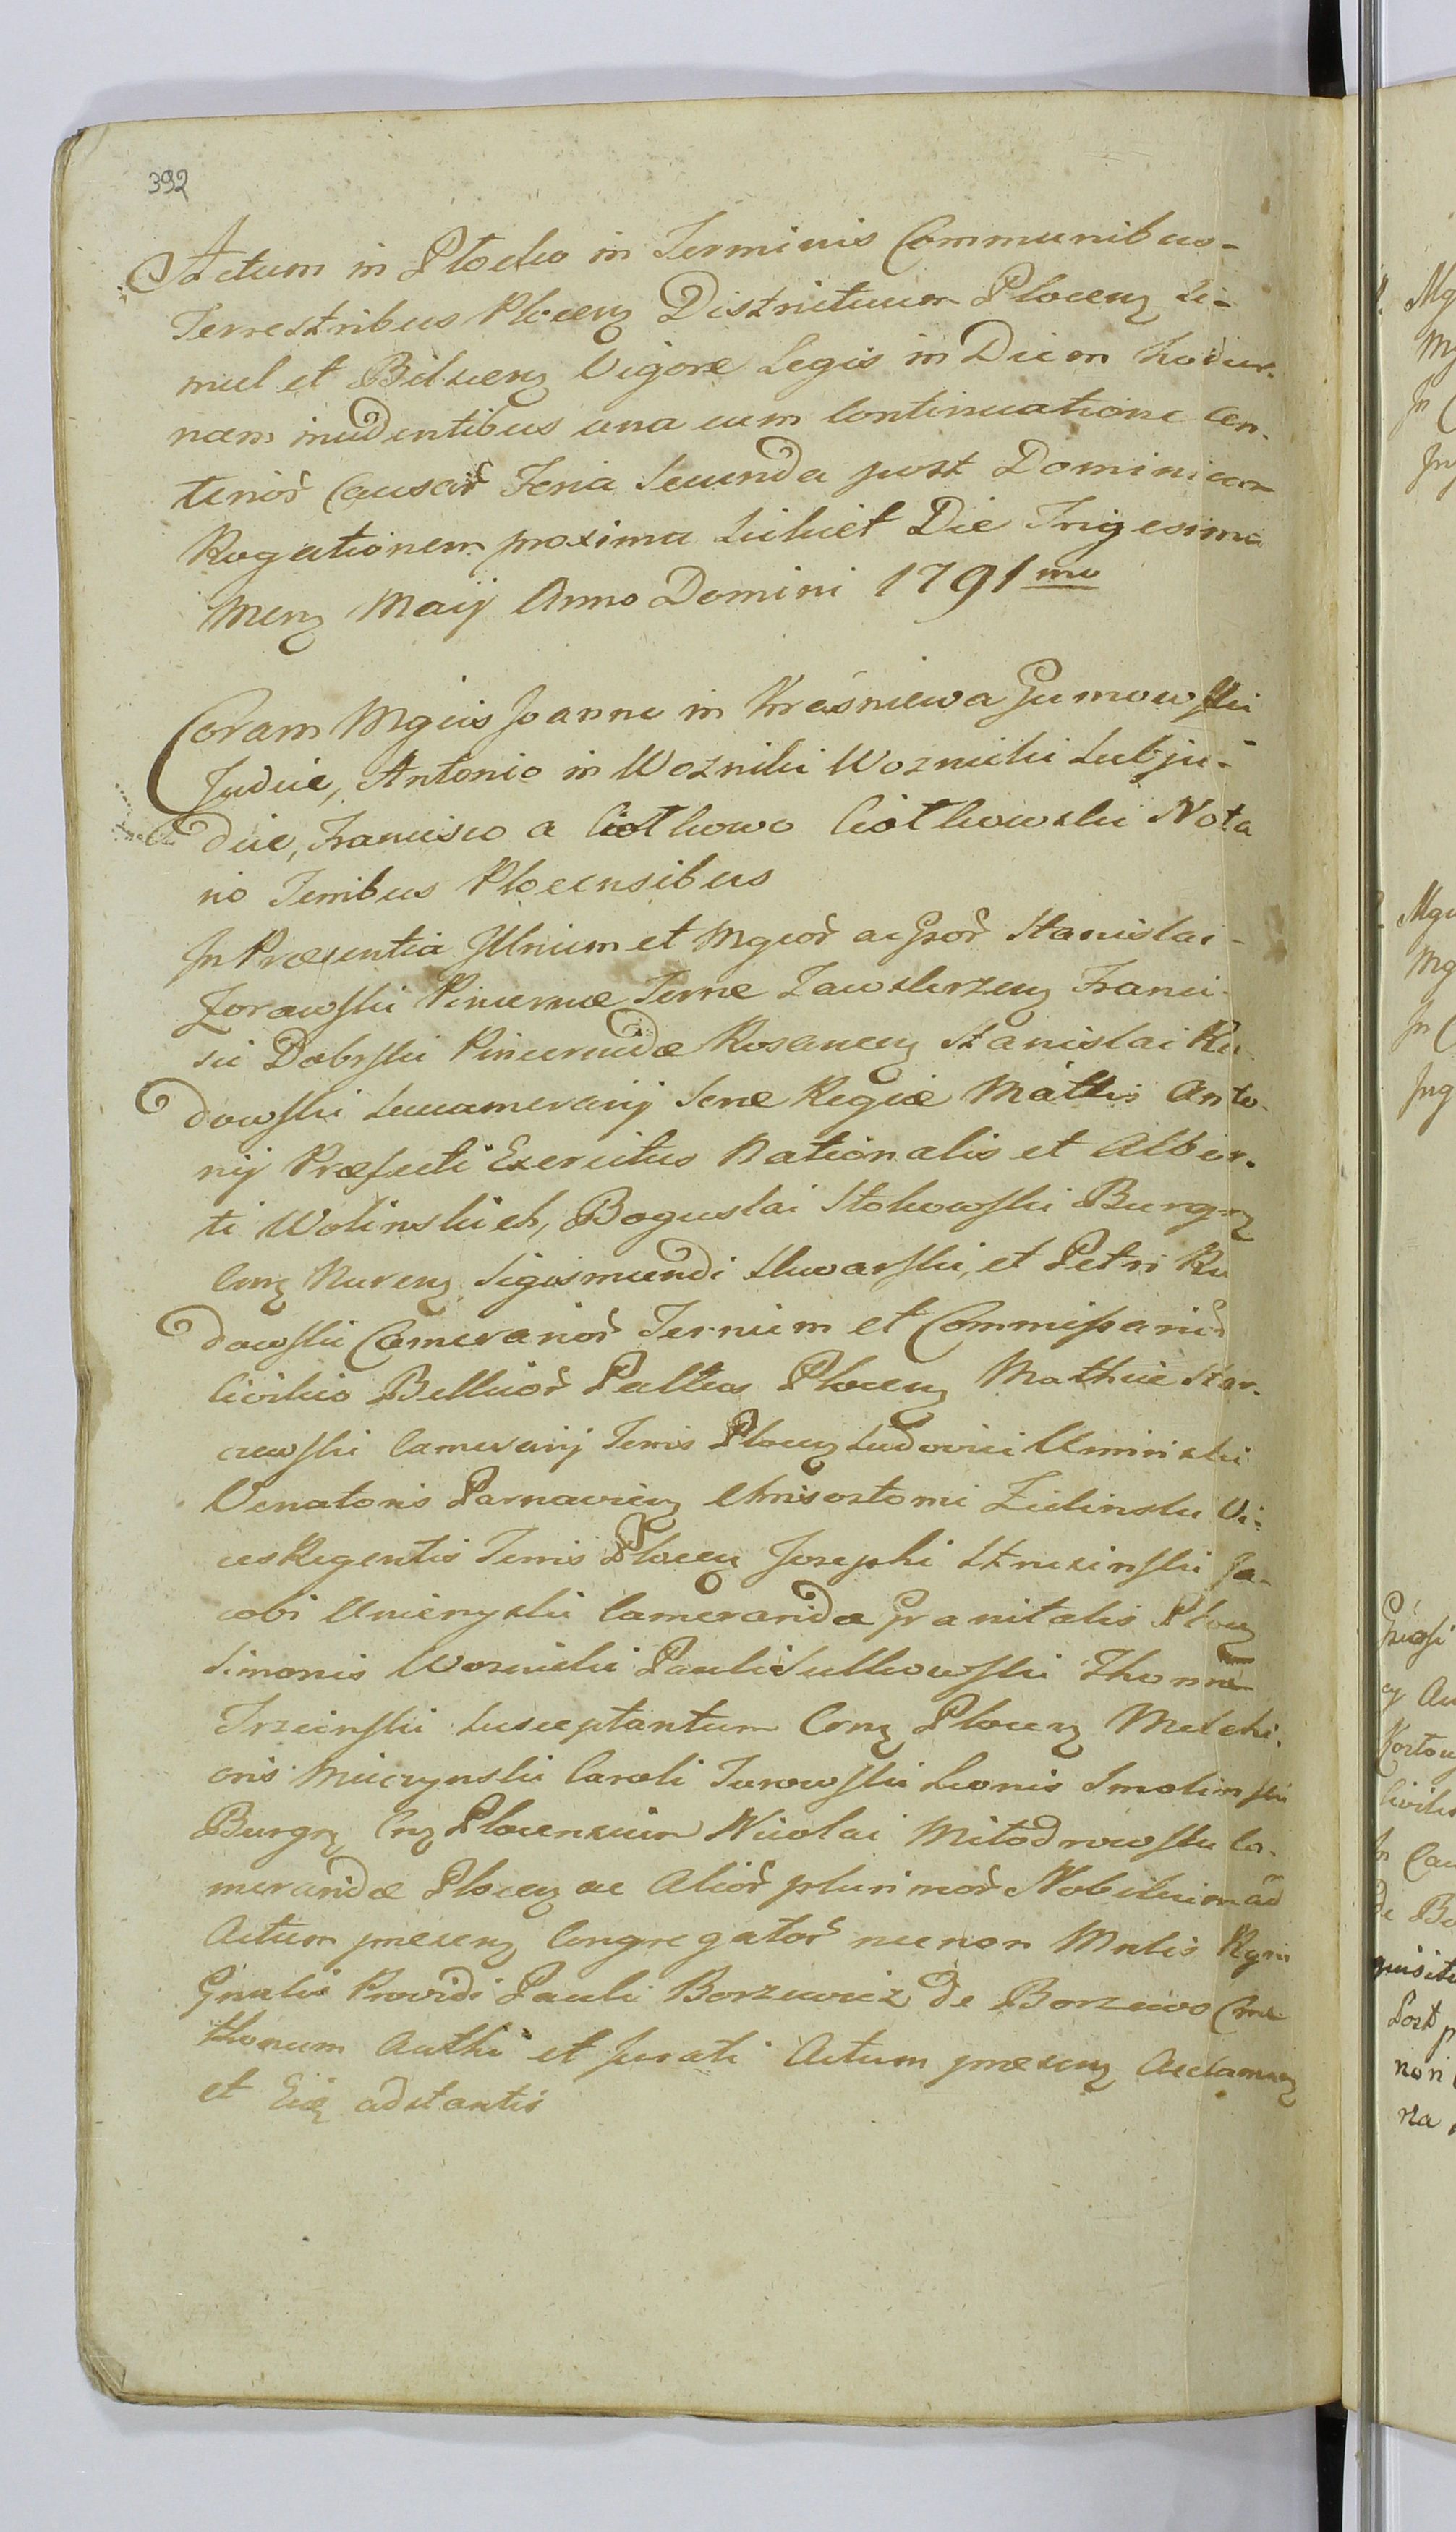 392
Actum in Plocko in Terminis Communibus-
Terrestribus Plocen Districtuum Plocen Si-
mul et Bilscen Vigore Legis in Diem hodier-
nam incidentibus una cum Continuatione Cer-
terior Causar Feria Secunda post Dominicam
Rogationem proxima Scilicet Die Trigesima
Men Maij Anno Domini 1791mo
Coram Mgcis Joanne in Kraśniewa Gumowski
Judice, Antonio in Woznilii Woznicki Subju-
dice, Francisco a Ciołkowo Ciołkowski Nota
rio Terribus Plocensibus
In Præsentia Illrium et Mgcor ac Gsor Stanislai-
Zorawski Pincernæ Terræ Zawskrzen Franci-
sci Dobrski Pincernidæ Rosanen Stanislai Ru-
dowski Succamerarij Senæ Regiæ Mattis Anto-
nij Præfecti Exercitus Nationalis et Alber-
ti Wolinskich, Boguslai Stokowski Burgr
Cen Nuren Sigismundi Skwarski, et Petri Ru
dowski Camerarior Ternium et Commissarior
Civilio Bellicor Palttus Plocen Mathiæ Star-
czewski Camerarij Terris Plocen Ludovici Uminski
Venatoris Parnavien Chrisostomi Zielinski Vi-
cesRegentis Terris Plocen Josephi Strusinski Ja-
cobi Unierzyski Cameraridæ Granitalis Plocen
Simonis Woznicki Pauli Sulkowski Thomæ
Trzcinski Susceptantum Cen Plocen Melchi-
oris Miiczynski Caroli Turowski Leonis Smolinski
Burgr Cen Plocensium Nicolai Mitodrowski Ca-
meraridæ Plocen ac Alior plurimor Nobilium ad
Actum præsen Congregator necnon Mnlis Regni
Gnalis Providi Pauli Borzewicz de Borzewo Cme
thonum Authi et Jurati Actum præsen Acclaman
et Eidem adstantis